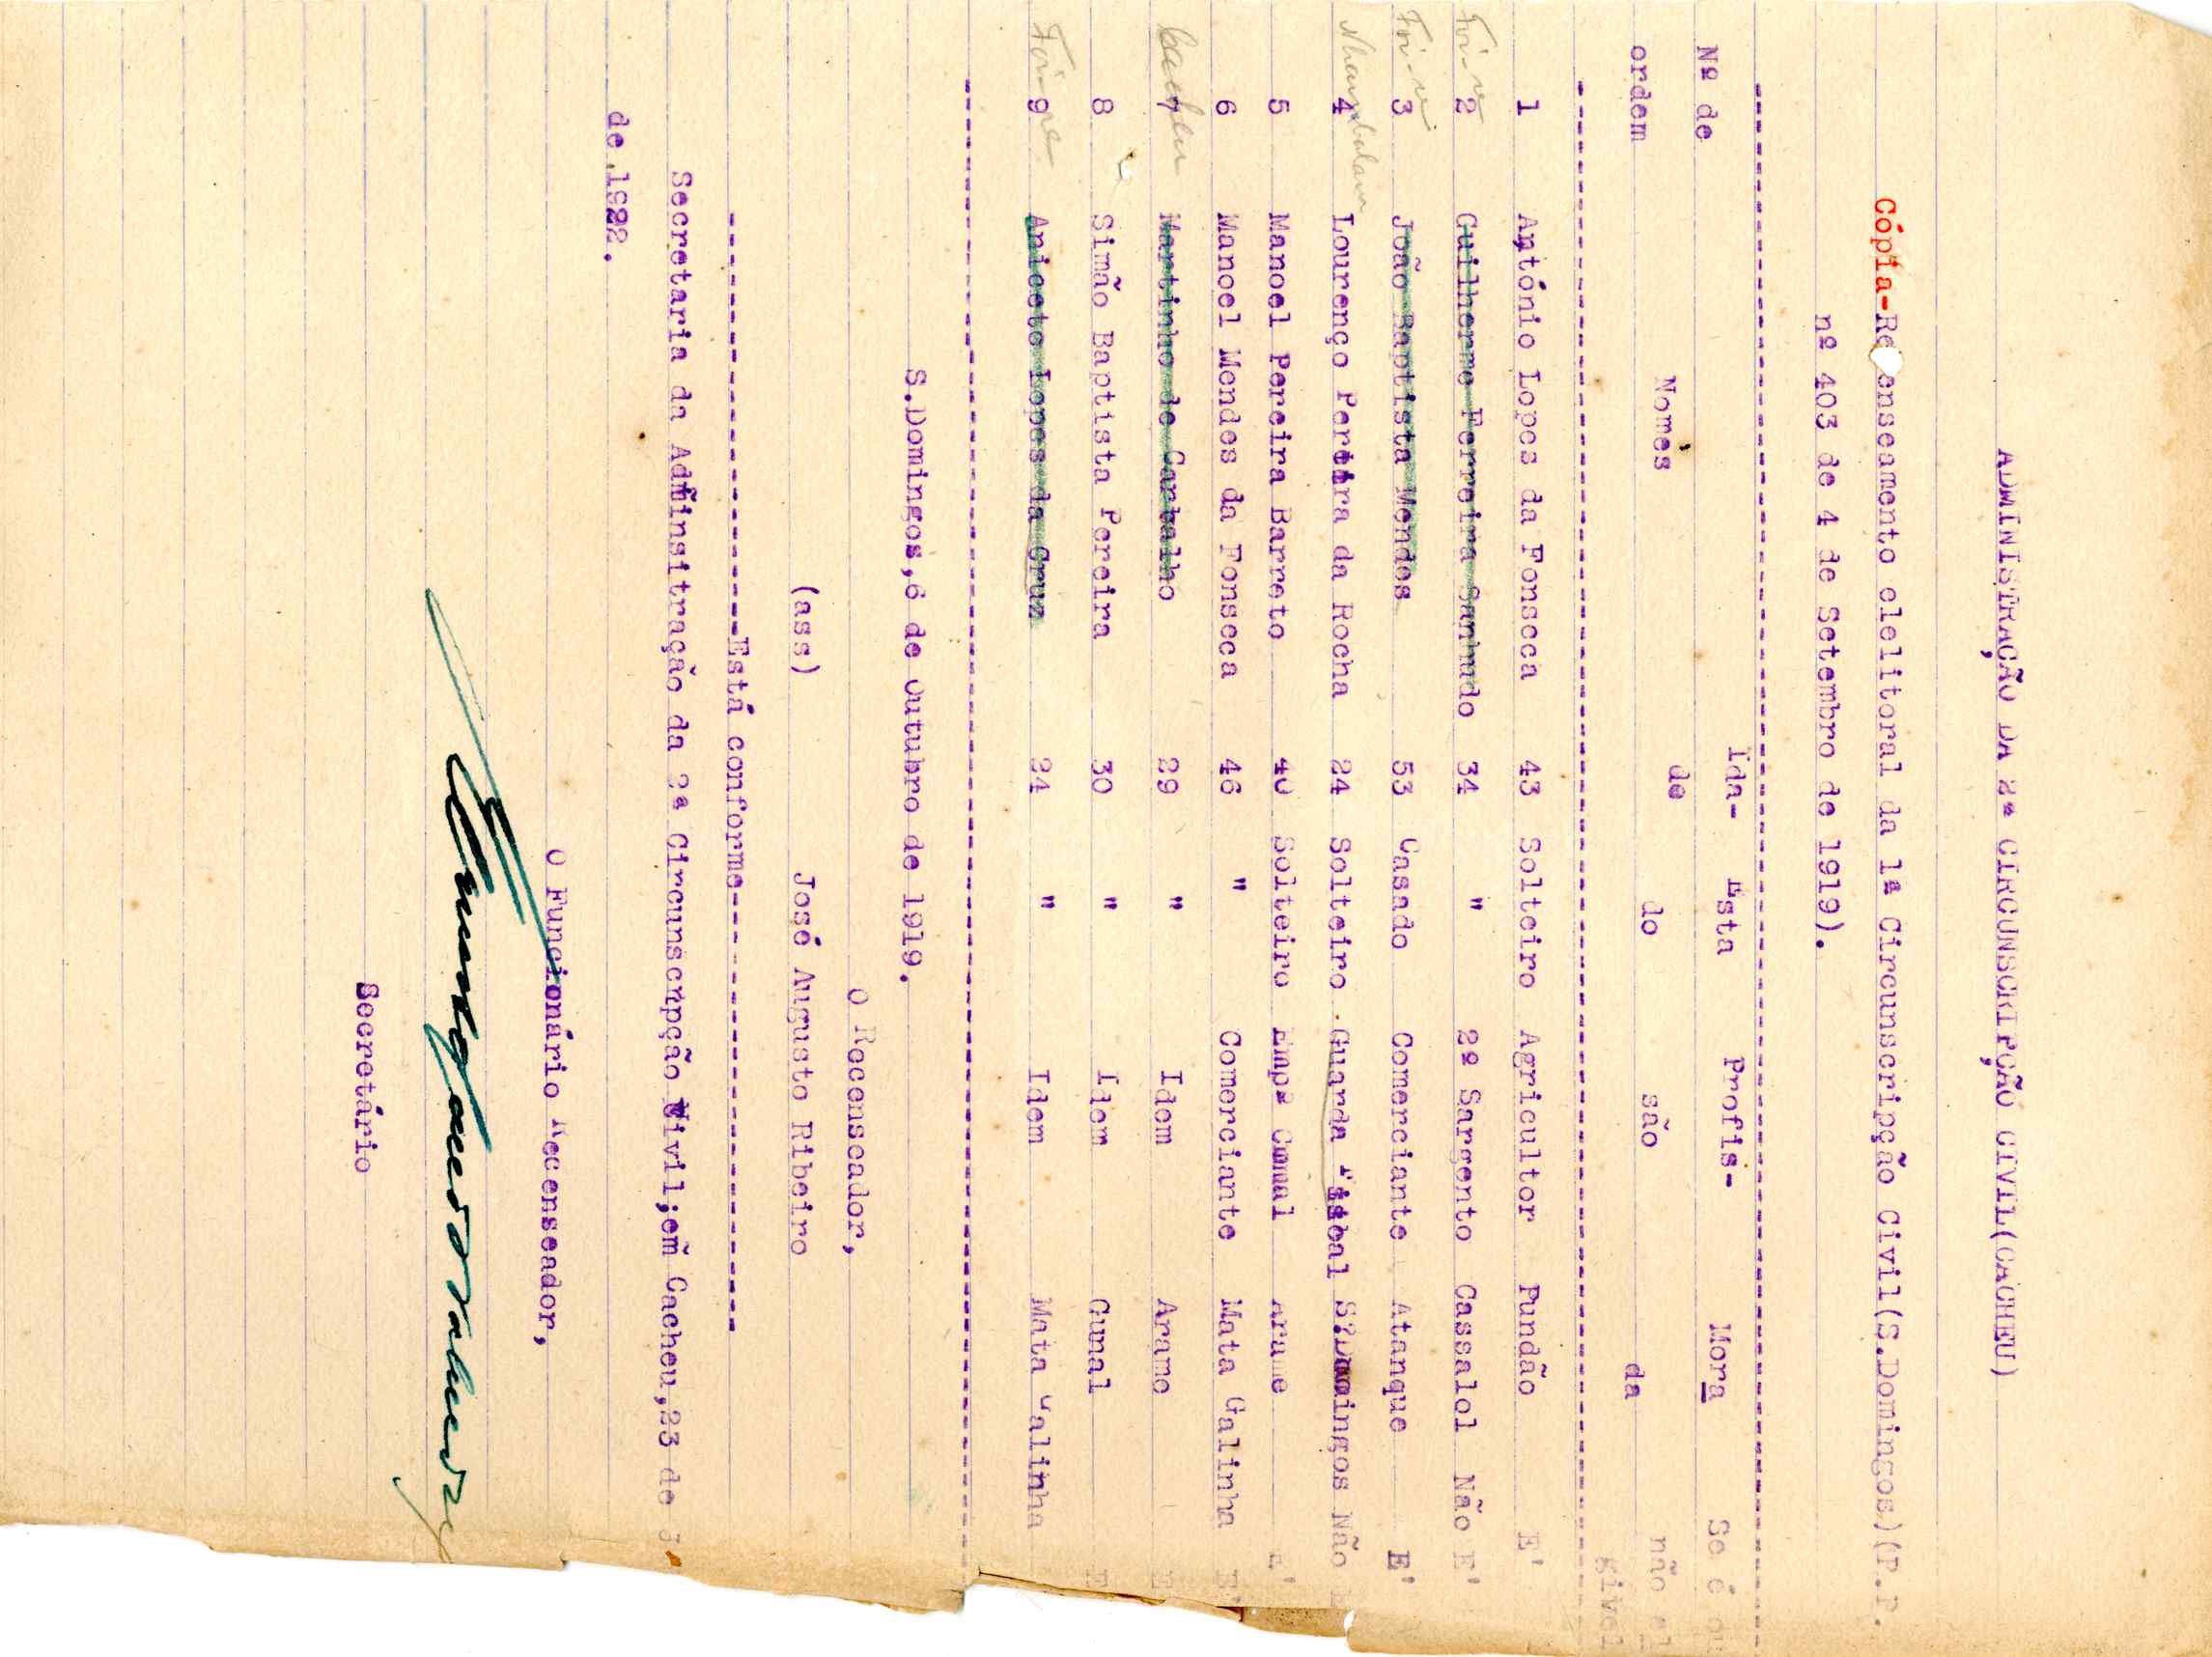 ADMINISTRAÇÃO DA 2ª CIRCUNSCRIPÇÃO CIVIL(CACHEU)
Cópia-Recenseamento elelitoral da 1ª Circunscripção Civil(S.Domingos)(P.P.
nº 403 de 4 de Setembro de 1919).
Nº de ordem Nomes Ida-de Esta do Profis-são Mora da Se é ou não el givel
1 António Lopes da Fonseca 43 Solteiro Agricultor Fundão E'
Foi 2 Guilherme Ferreira Sanhudo 34 " 2º Sargento Cassalol Não E'
Foi 3 João Baptista Mendes 53 Casado Comerciante Atanque E'
4 Lourenço Pereira da Rocha 24 Solteiro Guarda S?Domingos Não E
5 Manoel Pereira Barreto 40 Solteiro Empº Arame E'
6 Manoel Mendes da Fonseca 46 " Comerciante Mata Galinha E'
Cacheu 7 Martinho de Carvalho 29 " Idem Arame E
8 Simão Baptista Pereira 30 " Idem Gunal E
9 Aniceto Lopes da Cruz 24 " Idem Mata Galinha E
S.Domingos,6 de Outubro de 1919.
O Recenseador,
(ass) José Augusto Ribeiro
--------Está conforme--------
Secretaria da Adminsitração da 2ª Circunscrpção Civil;em Cacheu,23 de J
de 1922.
O Funcionário Recenseador,
Secretário